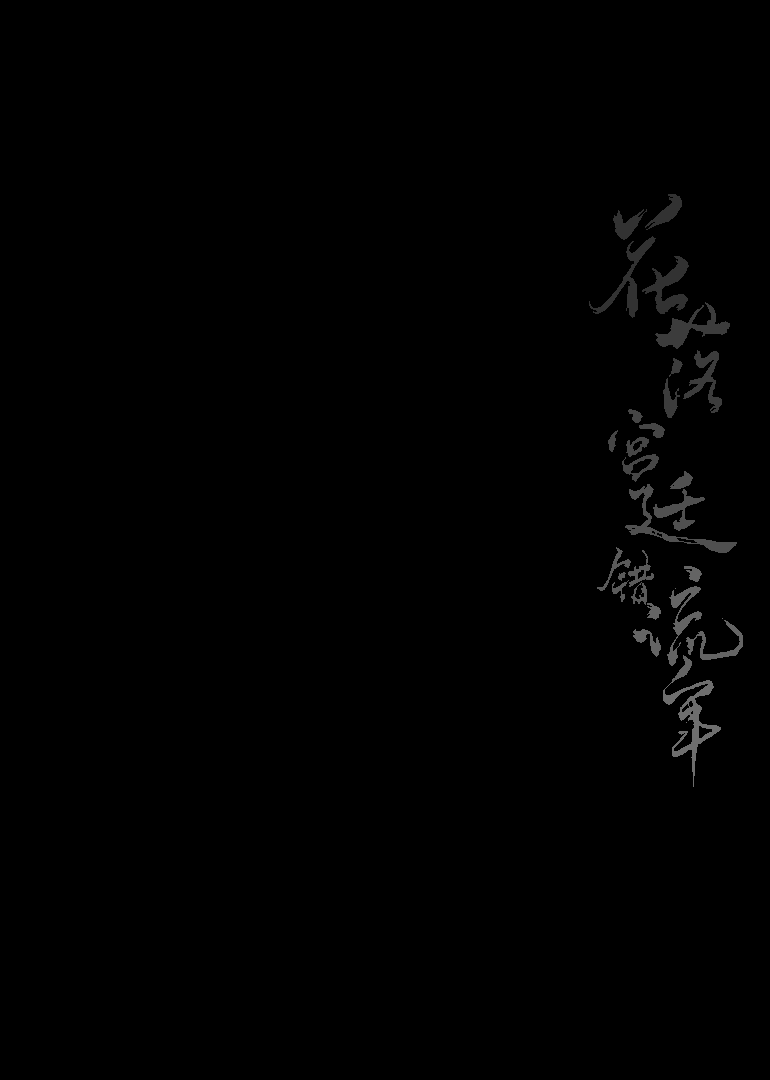 花落宫廷错流年